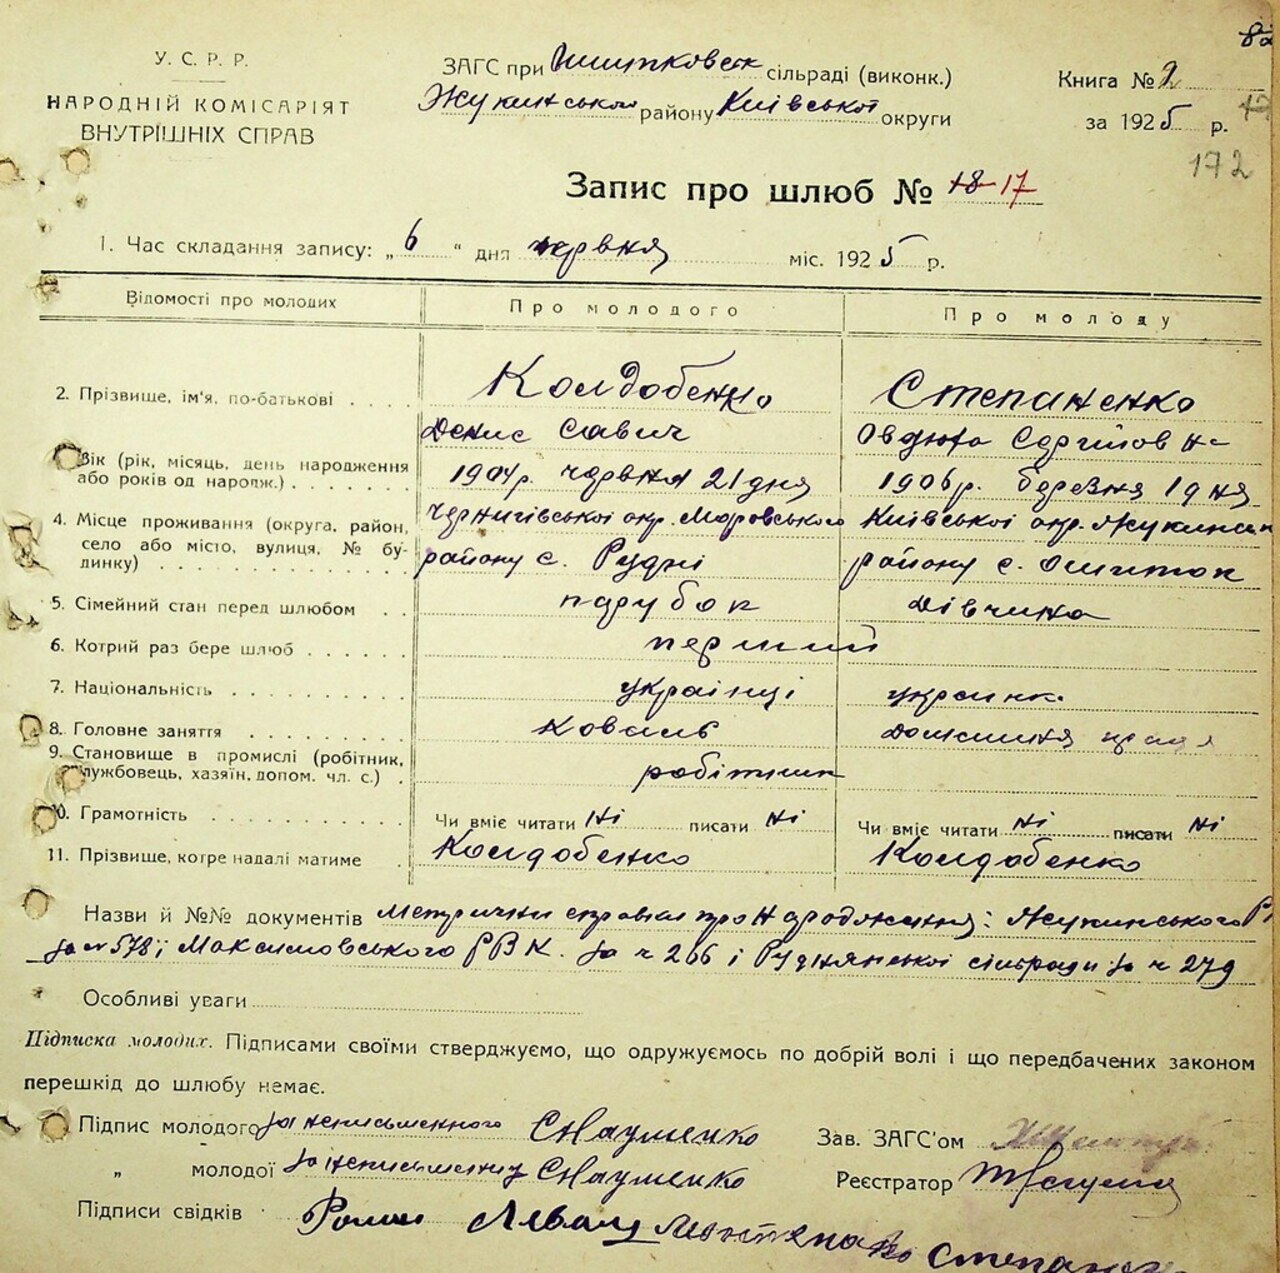 У. С. Р. Р.
НАРОДНІЙ КОМІСАРІЯТ
ВНУТРІШНІХ СПРАВ
ЗАГС при Ошитковськ сільраді (виконк.)
Жукинського району Київської округи
Книга № 2
за 1925 р.
172
Запис про шлюб № 18-17
1. Час складання запису: „ 6 “ дня червня міс. 1925 р.
Відомості про молодих
Про молодого
Про молоду
2. Прізвище, ім'я, по-батькові
Колдобенко
Степаненко
Денис Савич
Овдюха Сергіївн
Вік (рік, місяць, день народження або років од народж.)
1904 р. червня 21 дня
1906 р. березня 1 дня
4. Місце проживання (округа, район, село або місто, вулиця, № будинку)
Чернигівської окр. Моровського
району с. Рудні
Київської окр. Жукинськ
району с. Ошиток
5. Сімейний стан перед шлюбом
парубок
дівчина
6. Котрий раз бере шлюб
перший
7. Національність
українці
україн
8. Головне заняття
Коваль
домашня праця
9. Становище в промислі (робітник, службовець, хазяїн, допом. чл. с.)
робітник
10. Грамотність
Чи вміє читати ні писати ні
Чи вміє читати ні писати ні
11. Прізвище, котре надалі матиме
Колдобенко
Колдобенко
Назви й №№ документів Метрични справки про народження: Жукинського
за № 578; Максимовського РВК. за ч 266 і Руднянської сільради за ч 279
Особливі уваги
Підписка молодих. Підписами своїми стверджуємо, що одружуємось по добрій волі і що передбачених законом
перешкід до шлюбу немає.
Підпис молодого за неписьменного СНауменко
Зав. ЗАГС'ом
„ молодої за неписьменну СНауменко
Реєстратор
Підписи свідків Роман Левац Степан